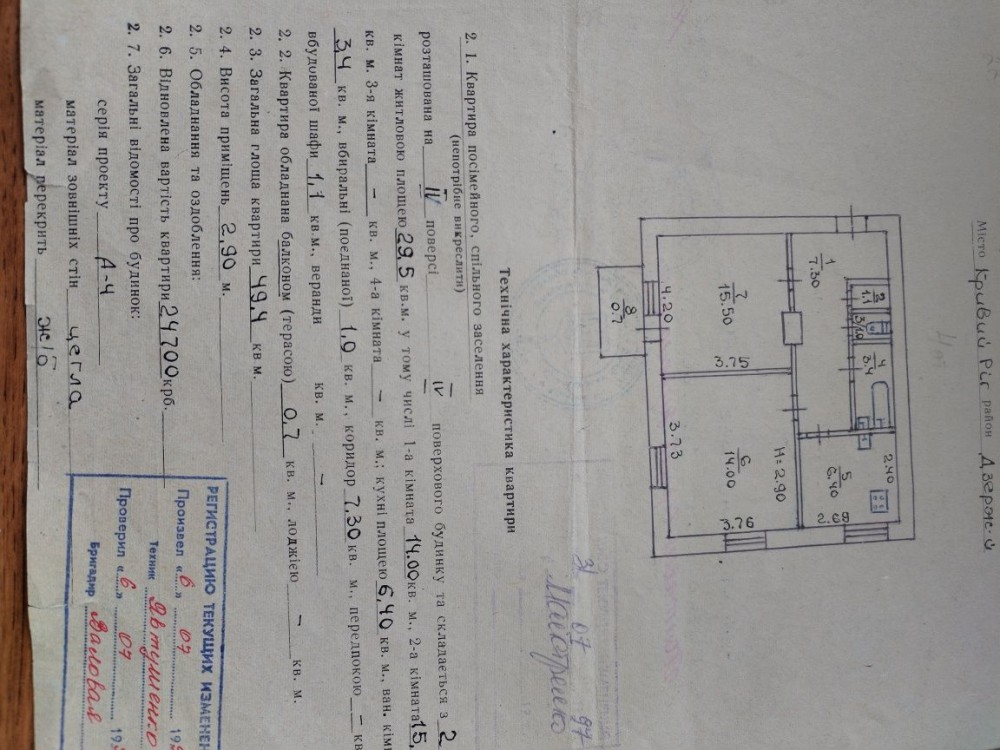 Місто Кривий Ріг район Дзержс.й
1
7.30
2
1.1
3
1.0
4
3.4
7
15.50
4.20
3.75
8
0.7
5
6.40
2.40
2.68
6
14.00
H=2.90
3.73
3.76
31 07 97
Технічна характеристика квартири
2. 1. Квартира посімейного, спільного заселення
(непотрібне викреслити)
розташована на IV поверсі IV поверхового будинку та складається з 2
кімнат житловою площею 29.5 кв.м. у тому числі 1-а кімната 14.00 кв. м., 2-а кімната 15,
кв. м. 3-я кімната – кв. м., 4-а кімната – кв. м.; кухні площею 6,40 кв. м., ван. кімн
3,4 кв. м., вбиральні (поєднаної) 1,0 кв. м., коридор 7.30 кв. м., передпокою – кв
вбудованої шафи 1,1 кв.м., веранди – кв. м.
2. 2. Квартира обладнана балконом (терасою) 0,7 кв. м., лоджією – кв. м.
2. 3. Загальна площа квартири 49,4 кв м.
2. 4. Висота приміщень 2,90 м.
2. 5. Обладнання та оздоблення:
2. 6. Відновлена вартість квартири 24700 крб.
2. 7. Загальні відомості про будинок:
серія проекту Д-4
матеріал зовнішніх стін цегла
матеріал перекрить ж/б
РЕГИСТРАЦИЮ ТЕКУЩИХ ИЗМЕНЕН
Произвел «6» 07 199
Техник Явтушенко
Проверил «6» 07 199
Бригадир Валовая